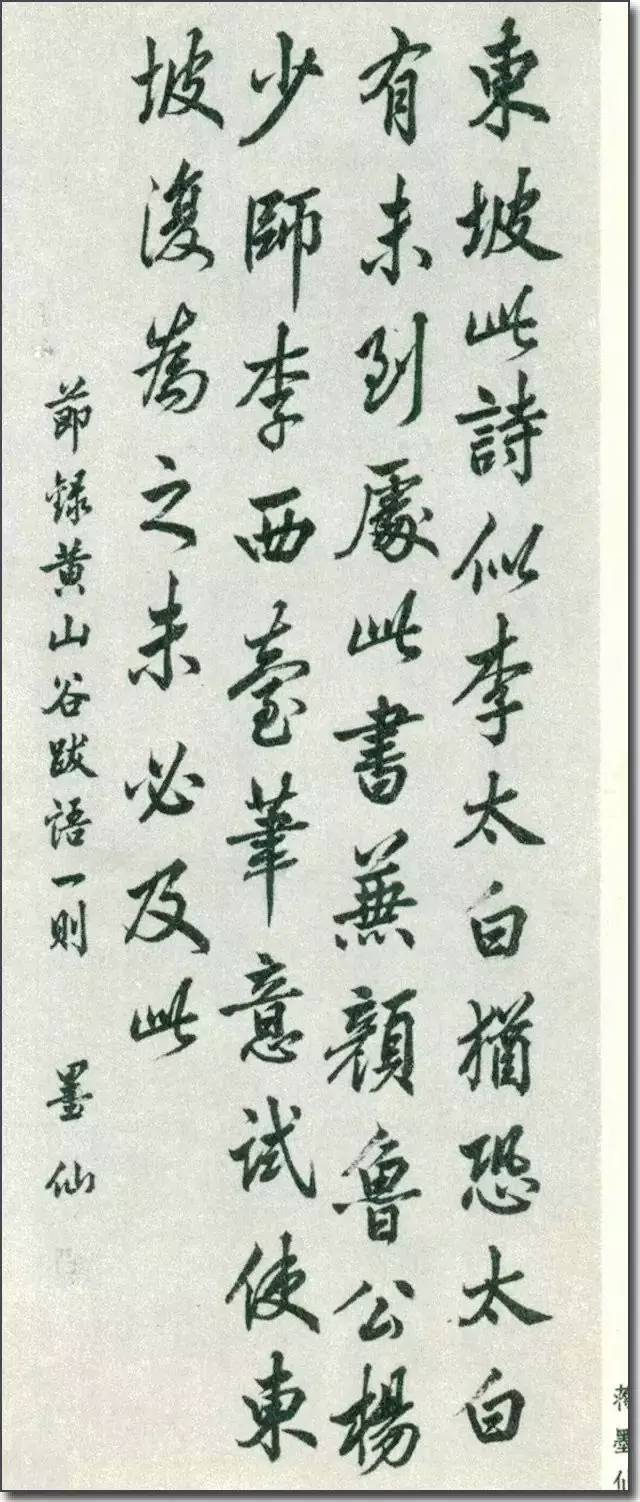 東坡此詩似李太白猶恐太白
有未到處此書兼顏魯公楊
少師李西臺筆意試使東
坡復為之未必及此
節録黄山谷跋語一則 墨仙
蒋墨仙